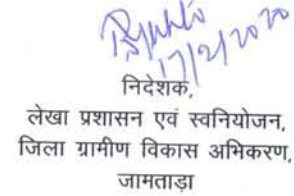 17/2/2020
निदेशक,
लेखा प्रशासन एवं स्वनियोजन,
जिला ग्रामीण विकास अभिकरण,
जामताड़ा